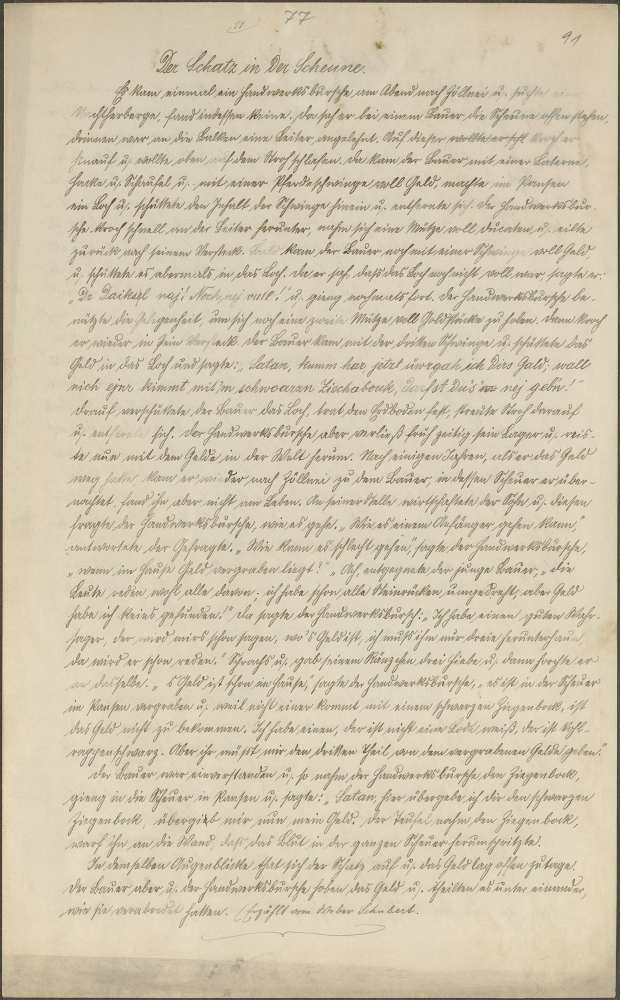 77
91
Der Schatz in der Scheune.
Es kam einmal ein Handwerksbursche am Abend nach Zöllnei u. suchte eine
Nachtherberge, fand indessen keine. Da sah er bei einem Bauer die Scheune offen stehen,
drinnen war an die Balken eine Leiter angelehnt. Auf dieser wollte er sich kroch er
hinauf u. wollte oben auf dem Stroh schlafen. Da kam der Bauer mit einer Laterne,
Hacke u. Schaufel u. mit einer Pferdeschwinge voll Geld, machte im Pansen
ein Loch u. schüttete den Inhalt der Schwinge hinein u. entfernte sich. Der Handwerksbur-
sche kroch schnell an der Leiter herunter, nahm sich eine Mütze voll Ducaten u. eilte
zurück nach seinem Versteck. Bald kam der Bauer noch mit einer Schwinge voll Geld
u. schüttete es abermals in das Loch. Da er sah, dass das Loch noch nicht voll war, sagte er:
u. gieng nochmals fort. Der Handwerksbursche be-
nützte die Gelegenheit, um sich noch eine zweite Mütze voll Goldstücke zu holen. Dann kroch
er wieder in sein Versteck. Der Bauer kam mit der dritten Schwinge u. schüttete das
Geld in das Loch und sagte: „Satan, kumm har jitzt
kimmt mit'm schwoarzn Zischabouk,
Darauf verschüttete der Bauer das Loch, trat den Erdboden fest, streute Stroh darauf
u. entfernte sich. Der Handwerksbursche aber verließ früh zeitig sein Lager u. reis-
te nun mit dem Gelde in der Welt herum. Nach einigen Jahren, als er das Geld
weg hatte, kam er wieder nach Zöllnei zu dem Bauer, in dessen Scheuer er über-
nachtet, fand ihn aber nicht am Leben. An seiner Stelle wirtschaftete der Sohn u. diesen
fragte der Handwerksbursche, wie es gehe. „Wie es einem Anfänger gehen kann,"
antwortete der Gefragte. „Wie kann es schlecht gehen", sagte der Handwerksbursche,
„wenn im Hause Geld vergraben liegt!" „Ach, entgegnete der junge Bauer, „die
Leute reden wohl alle davon; ich habe schon alle Steinrücken umgedreht, aber Geld
habe ich keins gefunden." Da sagte der Handwerksbursch: „Ich habe einen guten Wahr-
sager, der wird mirs schon sagen, wo's Geld ist, ich muß ihm nur dreie herunterhaun,
da wird er schon reden." Sprachs u. gab seinem Ränzchen drei Hiebe u. dann horchte er
an dasselbe. „'s Geld ist schon im Hause", sagte der Handwerksbursche, „es ist in der Scheuer
im Pansen vergraben u. weil nicht einer kommt mit einem schwarzen Ziegenbock, ist
das Geld nicht zu bekommen. Ich habe einen, der ist nicht eine Lodt weiß, der ist kohl-
rappenschwarz. Aber ihr müßt mir den dritten Theil von dem vergrabenen Gelde geben."
Der Bauer war einverstanden u. so nahm der Handwerksbursche den Ziegenbock,
gieng in die Scheuer in Pansen u. sagte: „Satan, hier übergebe ich dir den schwarzen
Ziegenbock, übergieb mir nun mein Geld. Der Teufel nahm den Ziegenbock,
warf ihn an die Wand, daß das Blut in der ganzen Scheuer herumspritzte.
In demselben Augenblicke that sich der Schatz auf u. das Geld lag offen zutage.
Der Bauer aber u. der Handwerksbursche hoben das Geld u. theilten es unter einander,
wie sie verabredet hatten. (Erzählt vom Weber Schubert.